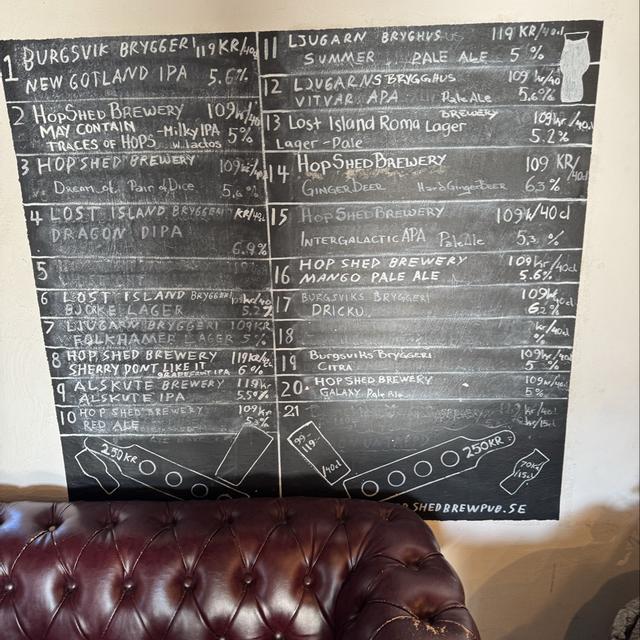 1 BURGSVIK BRYGGERI 119KR/40cl
NEW GOTLAND IPA 5.6%
2 HOPSHED BREWERY 109kr/
MAY CONTAIN -Milky IPA 5%
TRACES OF HOPS w. lactos
3 HOPSHED BREWERY 109kr/40
Dream of Pair of Dice 5,6%
4 LOST ISLAND BRYGGERI KR/40cl
DRAGON DIPA
6.9%
5
6 LOST ISLAND BRYGGERI
BJÖRKE LAGER 5.2%
7 LJUGARN BRYGGERI 109KR
FOLKHAMMER LAGER 5%
8 HOPSHED BREWERY 119KR/40
SHERRY DONT LIKE IT 6%
GRAPEFRUIT IPA
9 ALSKUTE BREWERY 119kr
ALSKUTE IPA 5.5%
10 HOP SHED BREWERY 109kr
RED ALE
250KR
11 LJUGARN BRYGHUS 119 KR/40cl
SUMMER PALE ALE 5 %
12 LJUGARNS BRYGGHUS 109 kr/40
VITVAR APA Pale Ale 5.6%
BREWERY
13 Lost Island Roma Lager 109kr/40cl
Lager-Pale 5.2%
14 HOPSHED BREWERY 109 KR/
40cl
GINGER DEER Hard Ginger Beer 6.3%
15 HOPSHED BREWERY 109kr/40cl
INTERGALACTIC APA Pale Ale 5,3 %
16 HOP SHED BREWERY 109kr/40cl
MANGO PALE ALE 5.6%
17 BURGSVIKS BRYGGERI 109kr/40cl
DRICKU 6.2%
18 kr/40cl
%
19 Burgsviks Bryggeri 109kr/40cl
CITRA 5 %
20 HOPSHED BREWERY 109kr/40cl
GALAXY Pale Ale 5%
21 kr/40cl
kr/15cl
99:-
119:-
/40cl
250KR:-
70KR
/15cl
SHEDBREWPUB.SE